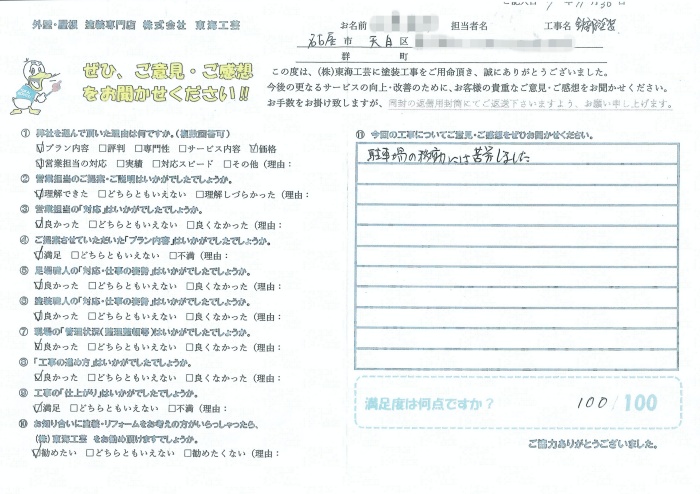 外壁・屋根 塗装専門店 株式会社 東海工芸
お名前 担当者名 工事名
名古屋 市 天白 区
郡 町
ぜひ、ご意見・ご感想
をお聞かせください!!
この度は、(株)東海工芸に塗装工事をご用命頂き、誠にありがとうございました。
今後の更なるサービスの向上・改善のために、お客様の貴重なご意見・ご感想をお聞かせください。
お手数をお掛け致しますが、同封の返信用封筒にてご返送下さいますよう、お願い申し上げます。
① 弊社を選んで頂いた理由は何ですか。(複数回答可)
☑プラン内容 □評判 □専門性 □サービス内容 ☑価格
☑営業担当の対応 □実績 □対応スピード □その他 (理由:
② 営業担当のご提案・ご説明はいかがでしたでしょうか。
☑理解できた □どちらともいえない □理解しづらかった (理由:
③ 営業担当の「対応」はいかがでしたでしょうか。
☑良かった □どちらともいえない □良くなかった (理由:
④ ご提案させていただいた「プラン内容」はいかがでしたでしょうか。
☑満足 □どちらともいえない □不満 (理由:
⑤ 足場職人の「対応・仕事の姿勢」はいかがでしたでしょうか。
☑良かった □どちらともいえない □良くなかった (理由:
⑥ 塗装職人の「対応・仕事の姿勢」はいかがでしたでしょうか。
☑良かった □どちらともいえない □良くなかった (理由:
⑦ 現場の「管理状況(整理整頓等)」はいかがでしたでしょうか。
☑良かった □どちらともいえない □良くなかった (理由:
⑧ 「工事の進め方」はいかがでしたでしょうか。
☑良かった □どちらともいえない □良くなかった (理由:
⑨ 工事の「仕上がり」はいかがでしたでしょうか。
☑満足 □どちらともいえない □不満 (理由:
⑩ お知り合いに塗装・リフォームをお考えの方がいらっしゃったら、
(株)東海工芸 をお勧め頂けますでしょうか。
☑勧めたい □どちらともいえない □勧めたくない (理由:
⑪ 今回の工事についてご意見・ご感想をぜひお聞かせください。
駐車場の移動には苦労しました
満足度は何点ですか? 100/100
ご協力ありがとうございました。